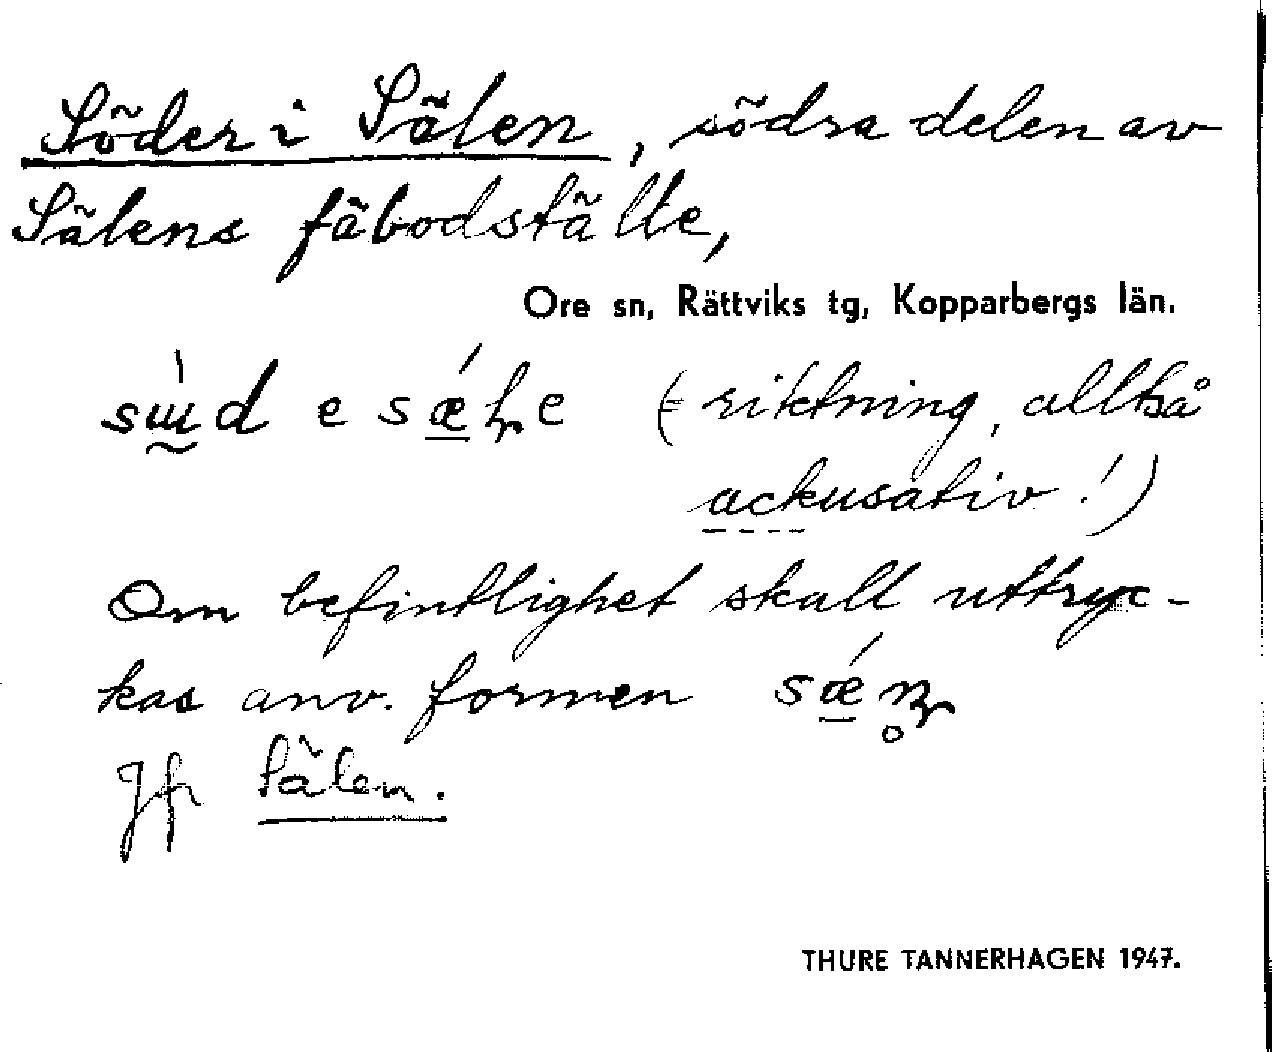 Söder i Sälen, södra delen av
Sälens fäbodställe,
Ore sn, Rättviks tg, Kopparbergs län.
e (= riktning, alltså
ackusativ!)
Om befintlighet skall uttryc-
kas anv. formen
Jfr Sälen.
THURE TANNERHAGEN 1947.